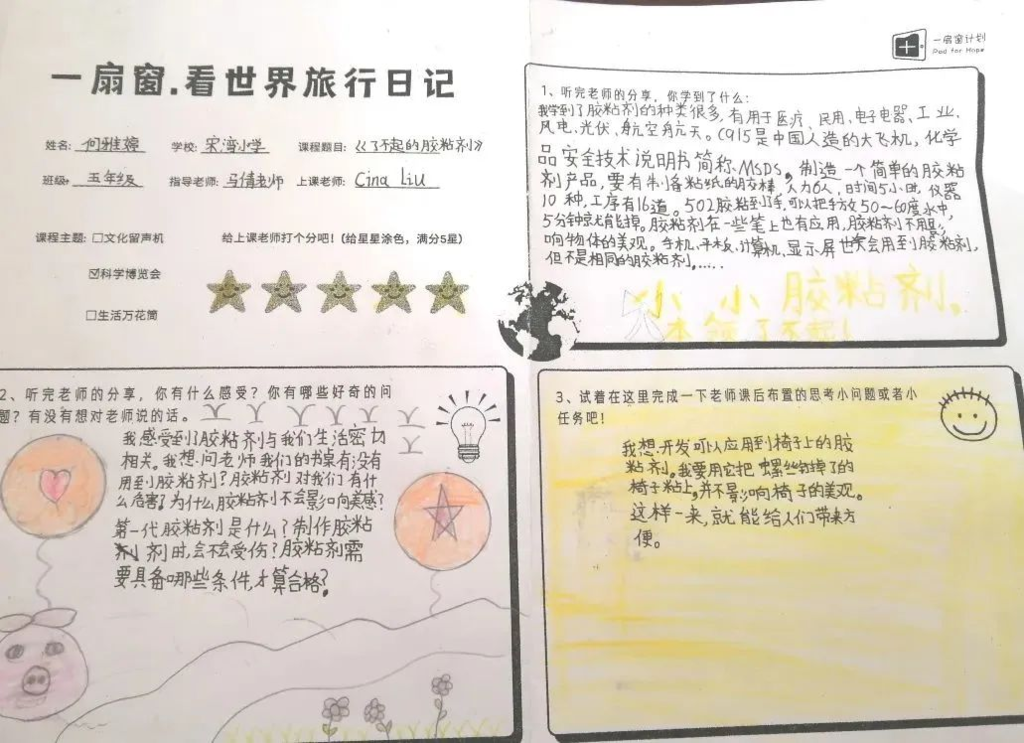 一扇窗.看世界旅行日记
姓名: 何雅婷 学校: 宋湾小学 课程题目: 《了不起的胶粘剂》
班级: 五年级 指导老师: 马倩老师 上课老师: Cina Liu
课程主题: □文化留声机 给上课老师打个分吧!(给星星涂色,满分5星)
☑科学博览会
□生活万花筒
一扇窗计划
Pad for Hope
1、听完老师的分享,你学到了什么:
我学到了胶粘剂的种类很多,有用于医疗、民用、电子电器、工业、
风电、光伏、航空航天。C915是中国人造的大飞机,化学
品安全技术说明书简称MSDS。制造一个简单的胶粘
剂产品,要有制备粘纸的胶棒,人力6人,时间5小时,仪器
10种,工序有16道。502胶粘到手,可以把手放50~60度水中,
5分钟就能掉。胶粘剂在一些笔上也有应用,胶粘剂不用影
响物体的美观。手机、平板、计算机、显示屏也会用到胶粘剂,
但不是相同的胶粘剂,……
小小胶粘剂,
本领了不起!
2、听完老师的分享,你有什么感受?你有哪些好奇的问
题?有没有想对老师说的话。
我感受到了胶粘剂与我们生活密切
相关。我想问老师我们的书桌有没有
用到胶粘剂?胶粘剂对我们有什
么危害?为什么胶粘剂不会影响美感?
第一代胶粘剂是什么?制作胶粘
剂时,会不会受伤?胶粘剂需
要具备哪些条件,才算合格?
3、试着在这里完成一下老师课后布置的思考小问题或者小
任务吧!
我想开发可以应用到椅子上的胶
粘剂。我要用它把螺丝钉掉了的
椅子粘上,并不影响椅子的美观。
这样一来,就能给人们带来方
便。